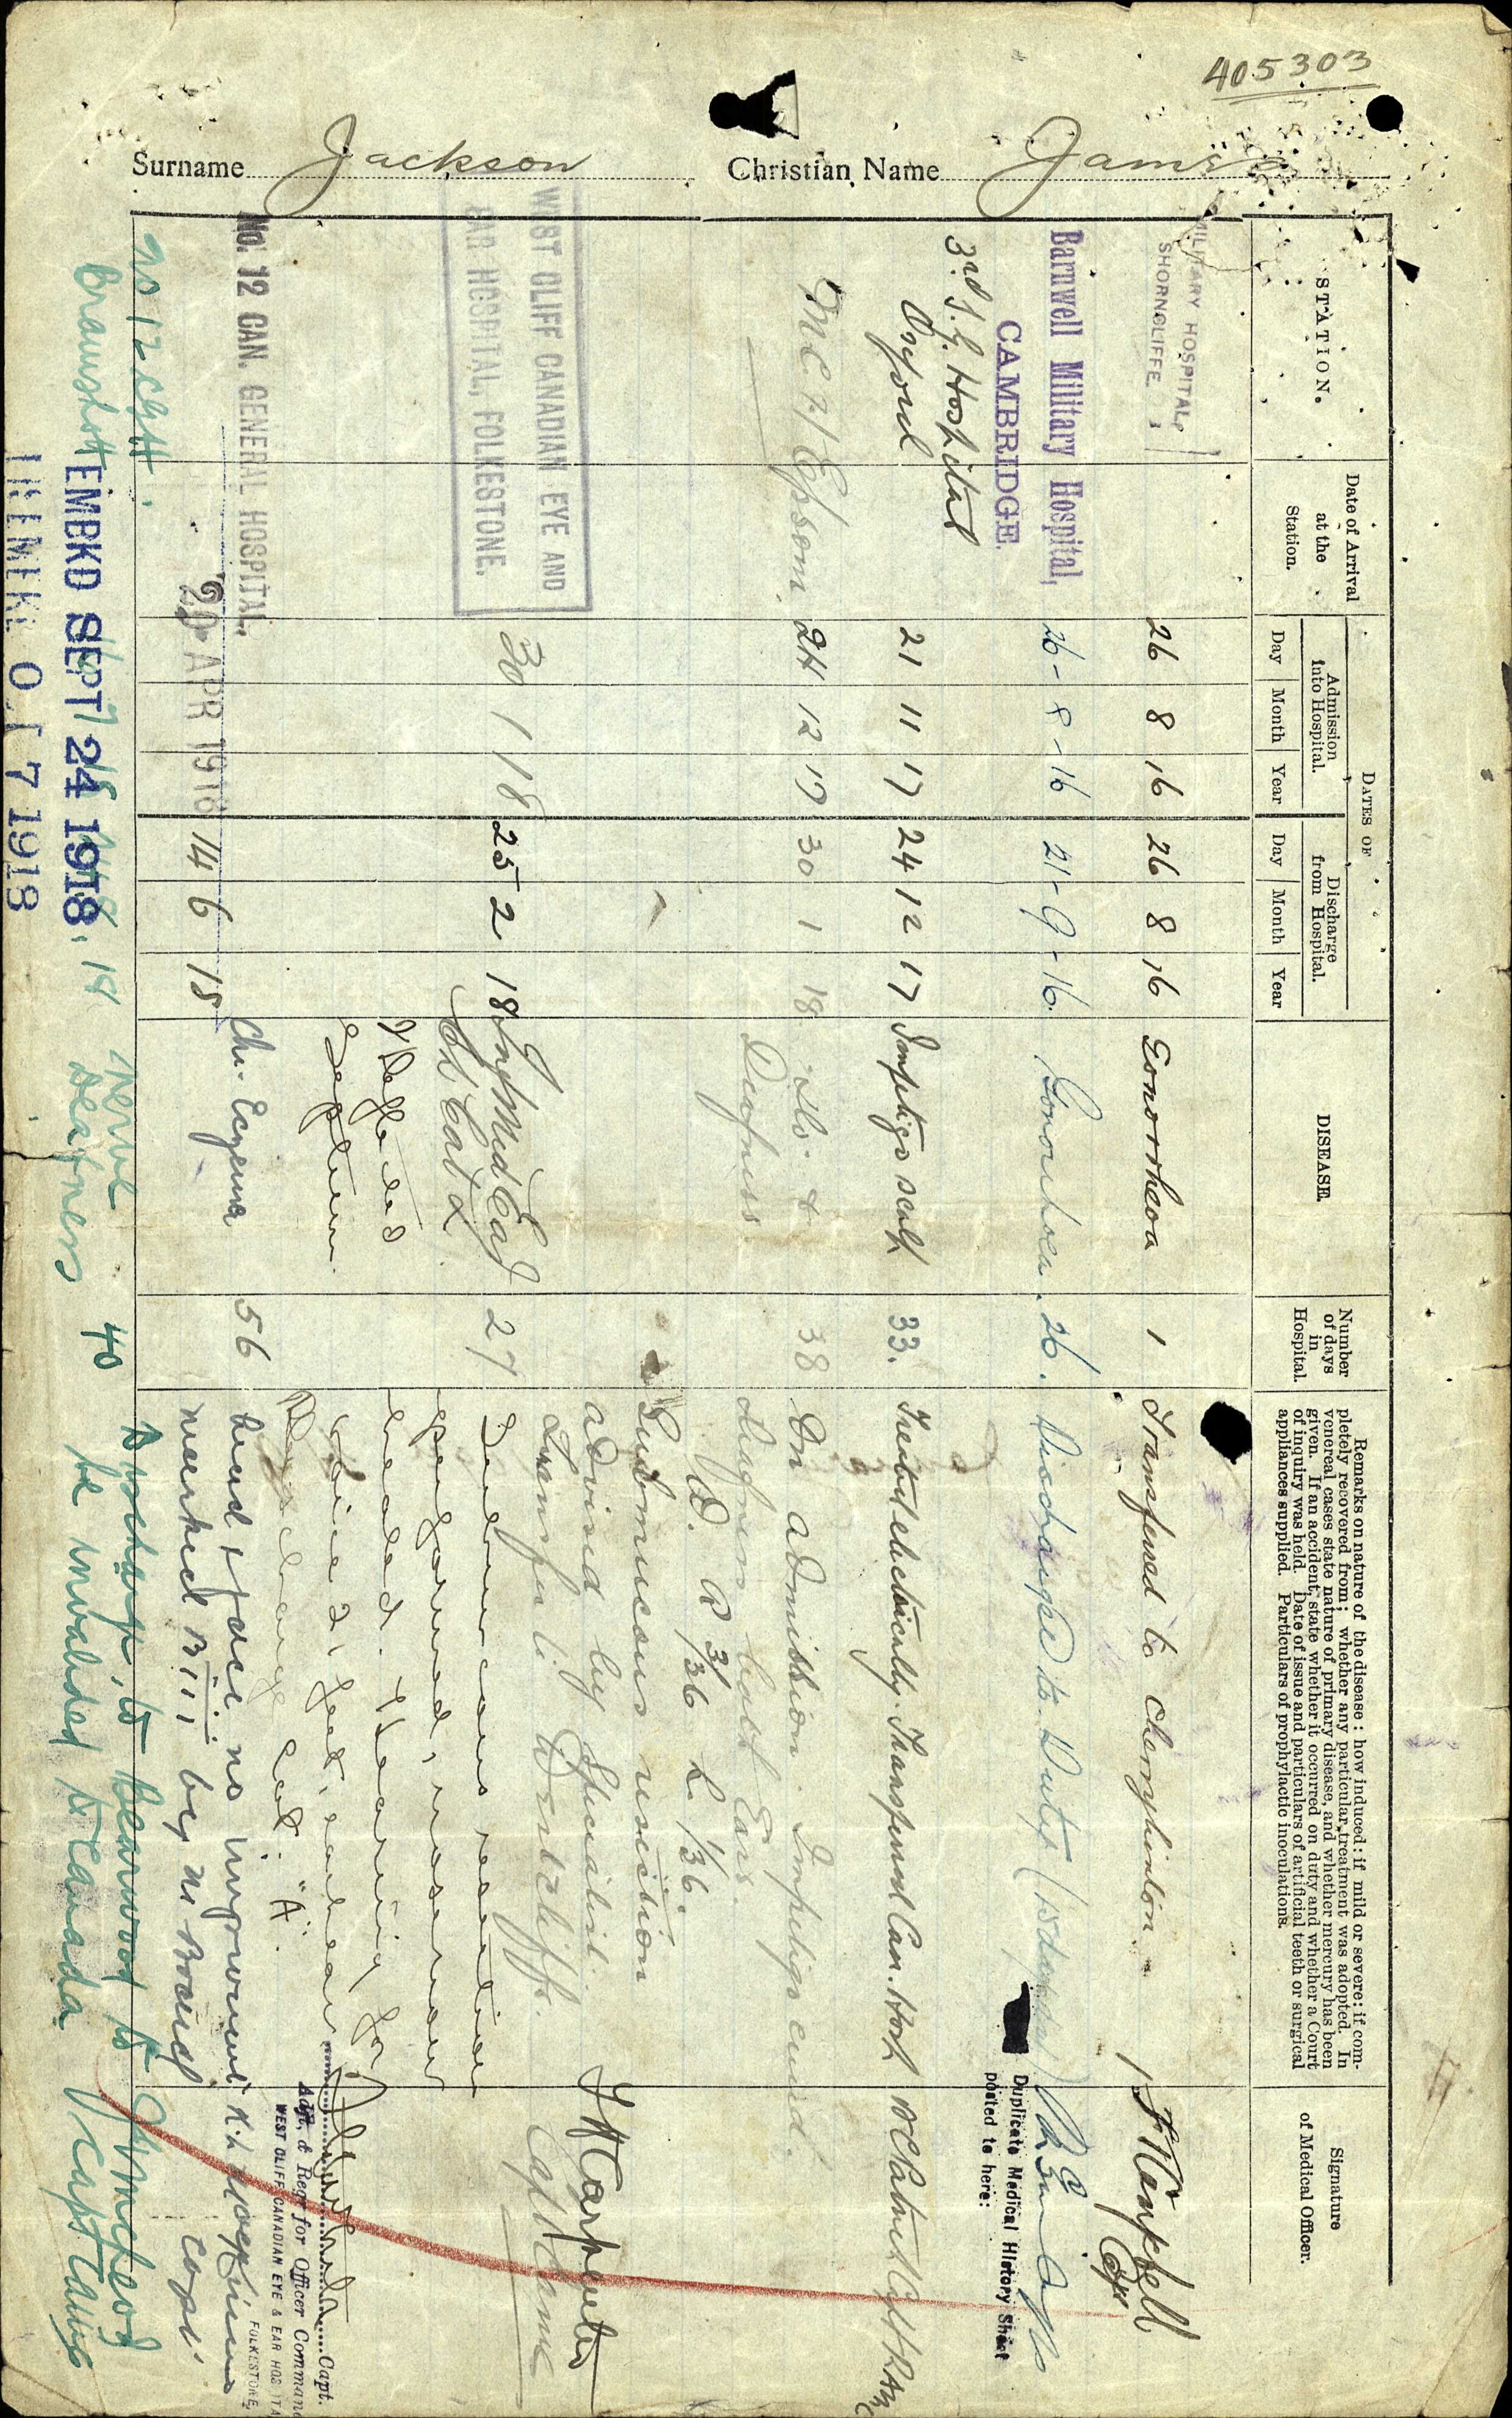 405303
Surname Jackson Christian Name James
STATION.
Date of Arrival
at the
Station.
DATES OF
Admission
into Hospital.
Discharge
from Hospital.
Day Month Year Day Month Year
DISEASE.
Number
of days
in
Hospital.
Remarks on nature of the disease: how induced: if mild or severe: if com-
pletely recovered from; whether any particular treatment was adopted. In
venereal cases state nature of primary disease, and whether mercury has been
given. If an accident, state whether it occurred on duty and whether a Court
of inquiry was held. Date of issue and particulars of artificial teeth or surgical
appliances supplied. Particulars of prophylactic inoculations.
Signature
of Medical Officer.
MILITARY HOSPITAL,
SHORNCLIFFE.
26 8 16 26 8 16 Gonorrheoa 1 Transferred to Cherryhinton
Capt
Barnwell Military Hospital,
CAMBRIDGE.
26-8-16 21-9-16. Gonorrhoea. 26. Discharged to Duty
Duplicate Medical History Sheet
posted to here:
3rd S. G. Hospital
Oxford
21 11 17 24 12 17 Impetigo scalp 33. Treated electrically. Transferred Can. Hosp
M C H Epsom. 24 12 17 30 1 18 do. &
Deafness
38 On admission. Impetigo cured.
deafness both Ears.
W. R 3/36 L 1/36.
Submucous resection
advised by Specialist.
Transfer to Westcliffe.
J H Carpenter
Capt CAMC
WEST CLIFF CANADIAN EYE AND
EAR HOSPITAL, FOLKESTONE.
30 1 18 25 2 18 Inf Mid Ear
Ch Cat L
& Deflected
Septum.
27 Submucous resection
performed, nose now
healed. Hearing for
voice 2 feet, each ear
Discharge Cat. "A".
Capt.
Adjt. & Regr for Officer Command
WEST CLIFF CANADIAN EYE & EAR HOSPITA
FOLKESTONE,
No. 12 CAN. GENERAL HOSPITAL.
20 APR 1918 14 6 18 Chr. Eczema 56
head & face no improvement
marked B iii by M Board
Capt.
No 12 CGH.
Bramshott
Nerve
Deafness 40
Discharge, to Bearwood to
be invalided to Canada
Capt CAMC
EMBKD SEPT 24 1918
7 1918